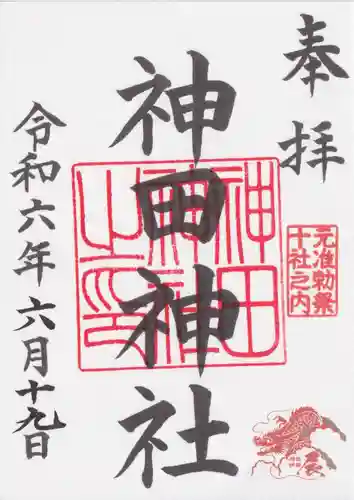 奉拝
元准勅祭
十社之内
神田神社
神田神社之印
辰
令和六年六月十九日